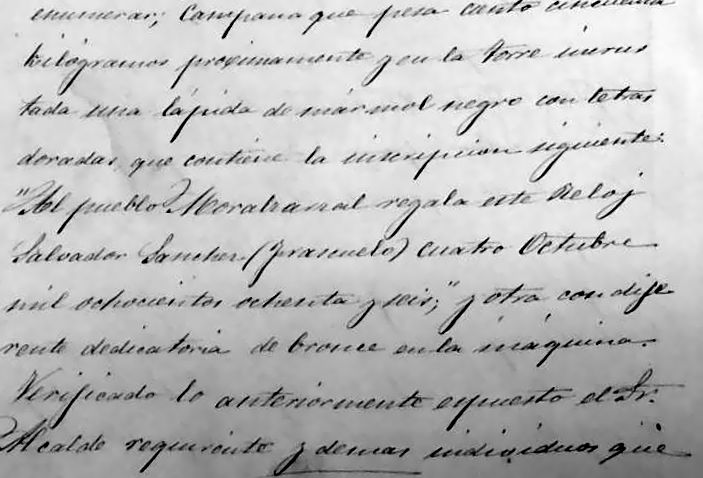 enumerar; Campana que pesa ciento cincuenta
kilógramos proximamente y en la torre incrus
tada una lápida de mármol negro con letras
doradas, que contiene la inscripcion siguiente:
"Al pueblo Moralzarzal regala este Reloj
Salvador Sanchez (Frascuelo) cuatro Octubre
mil ochocientos ochenta y seis;" y otra con dife
rente dedicatoria de bronce en la máquina.
Verificado lo anteriormente expuesto el Sr.
Alcalde requirente y demas individuos que